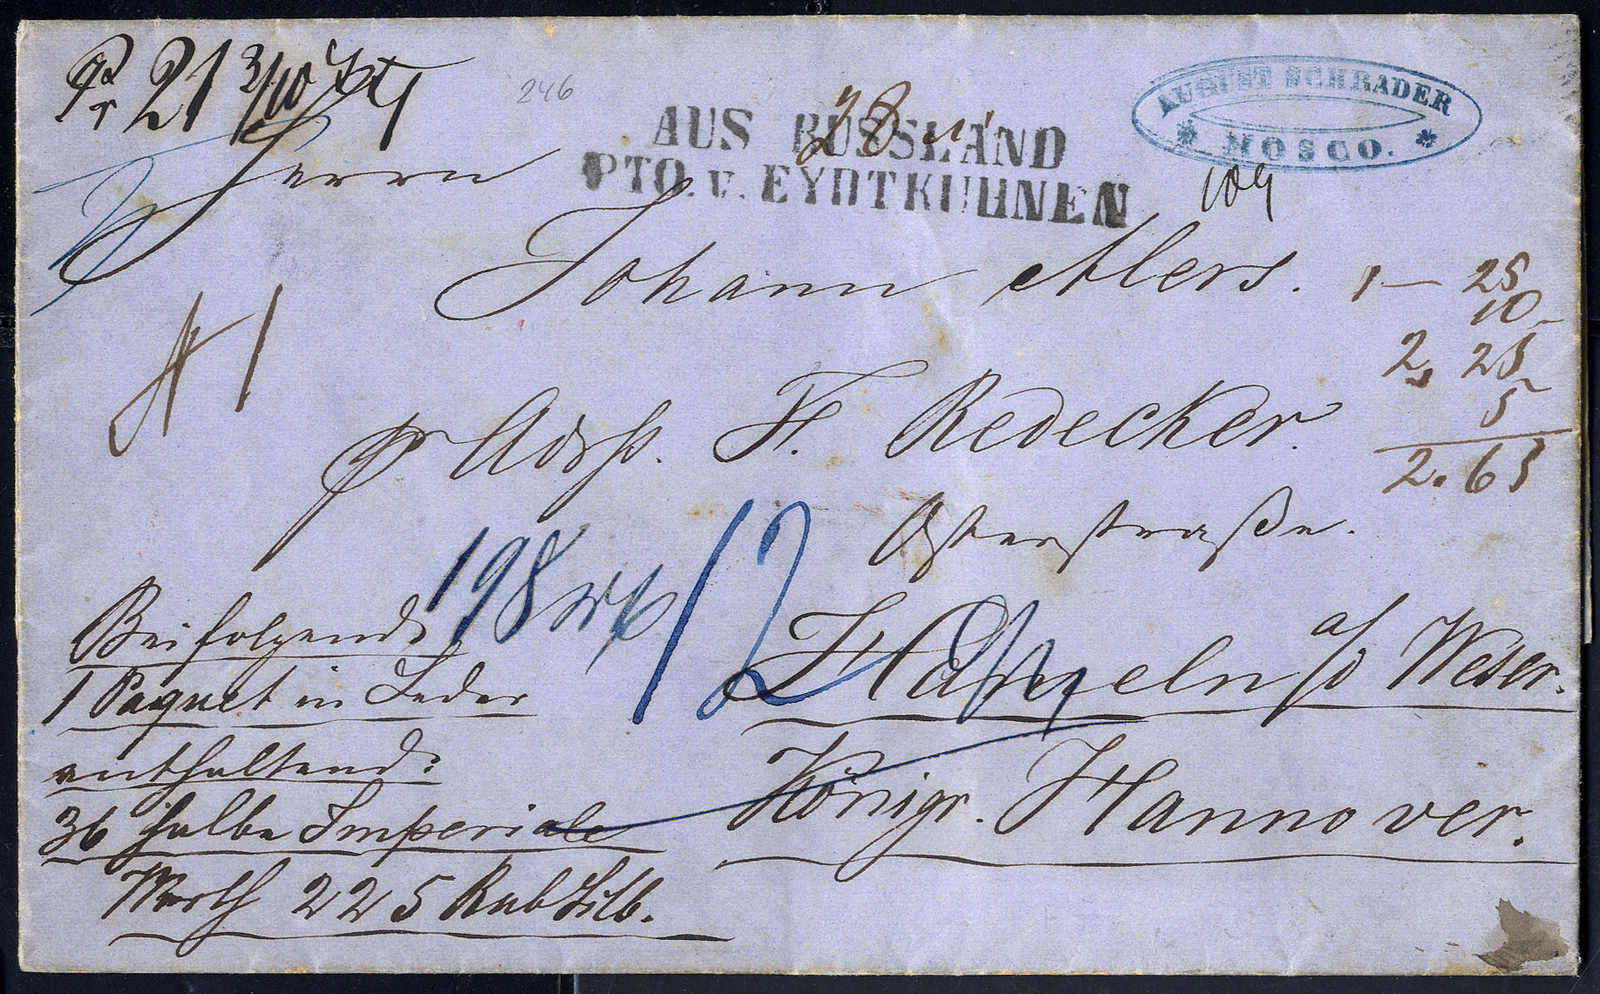 21 3/10
246
28
AUS RUSSLAND
PTO. v. EYDTKUHNEN
AUGUST SCHRADER
* MOSCO. *
109
Herrn
Johann Ahlers.
1 — 25
10
2, 25
5
2. 65
# 1
pr Adrss. F. Redecker.
Osterstraße.
198
12
Hameln a/d Weser.
Königr. Hannover.
Beifolgend:
1 Paquet in Leder
enthaltend:
36 halbe Imperiale
Werth 225 Rub Silb.